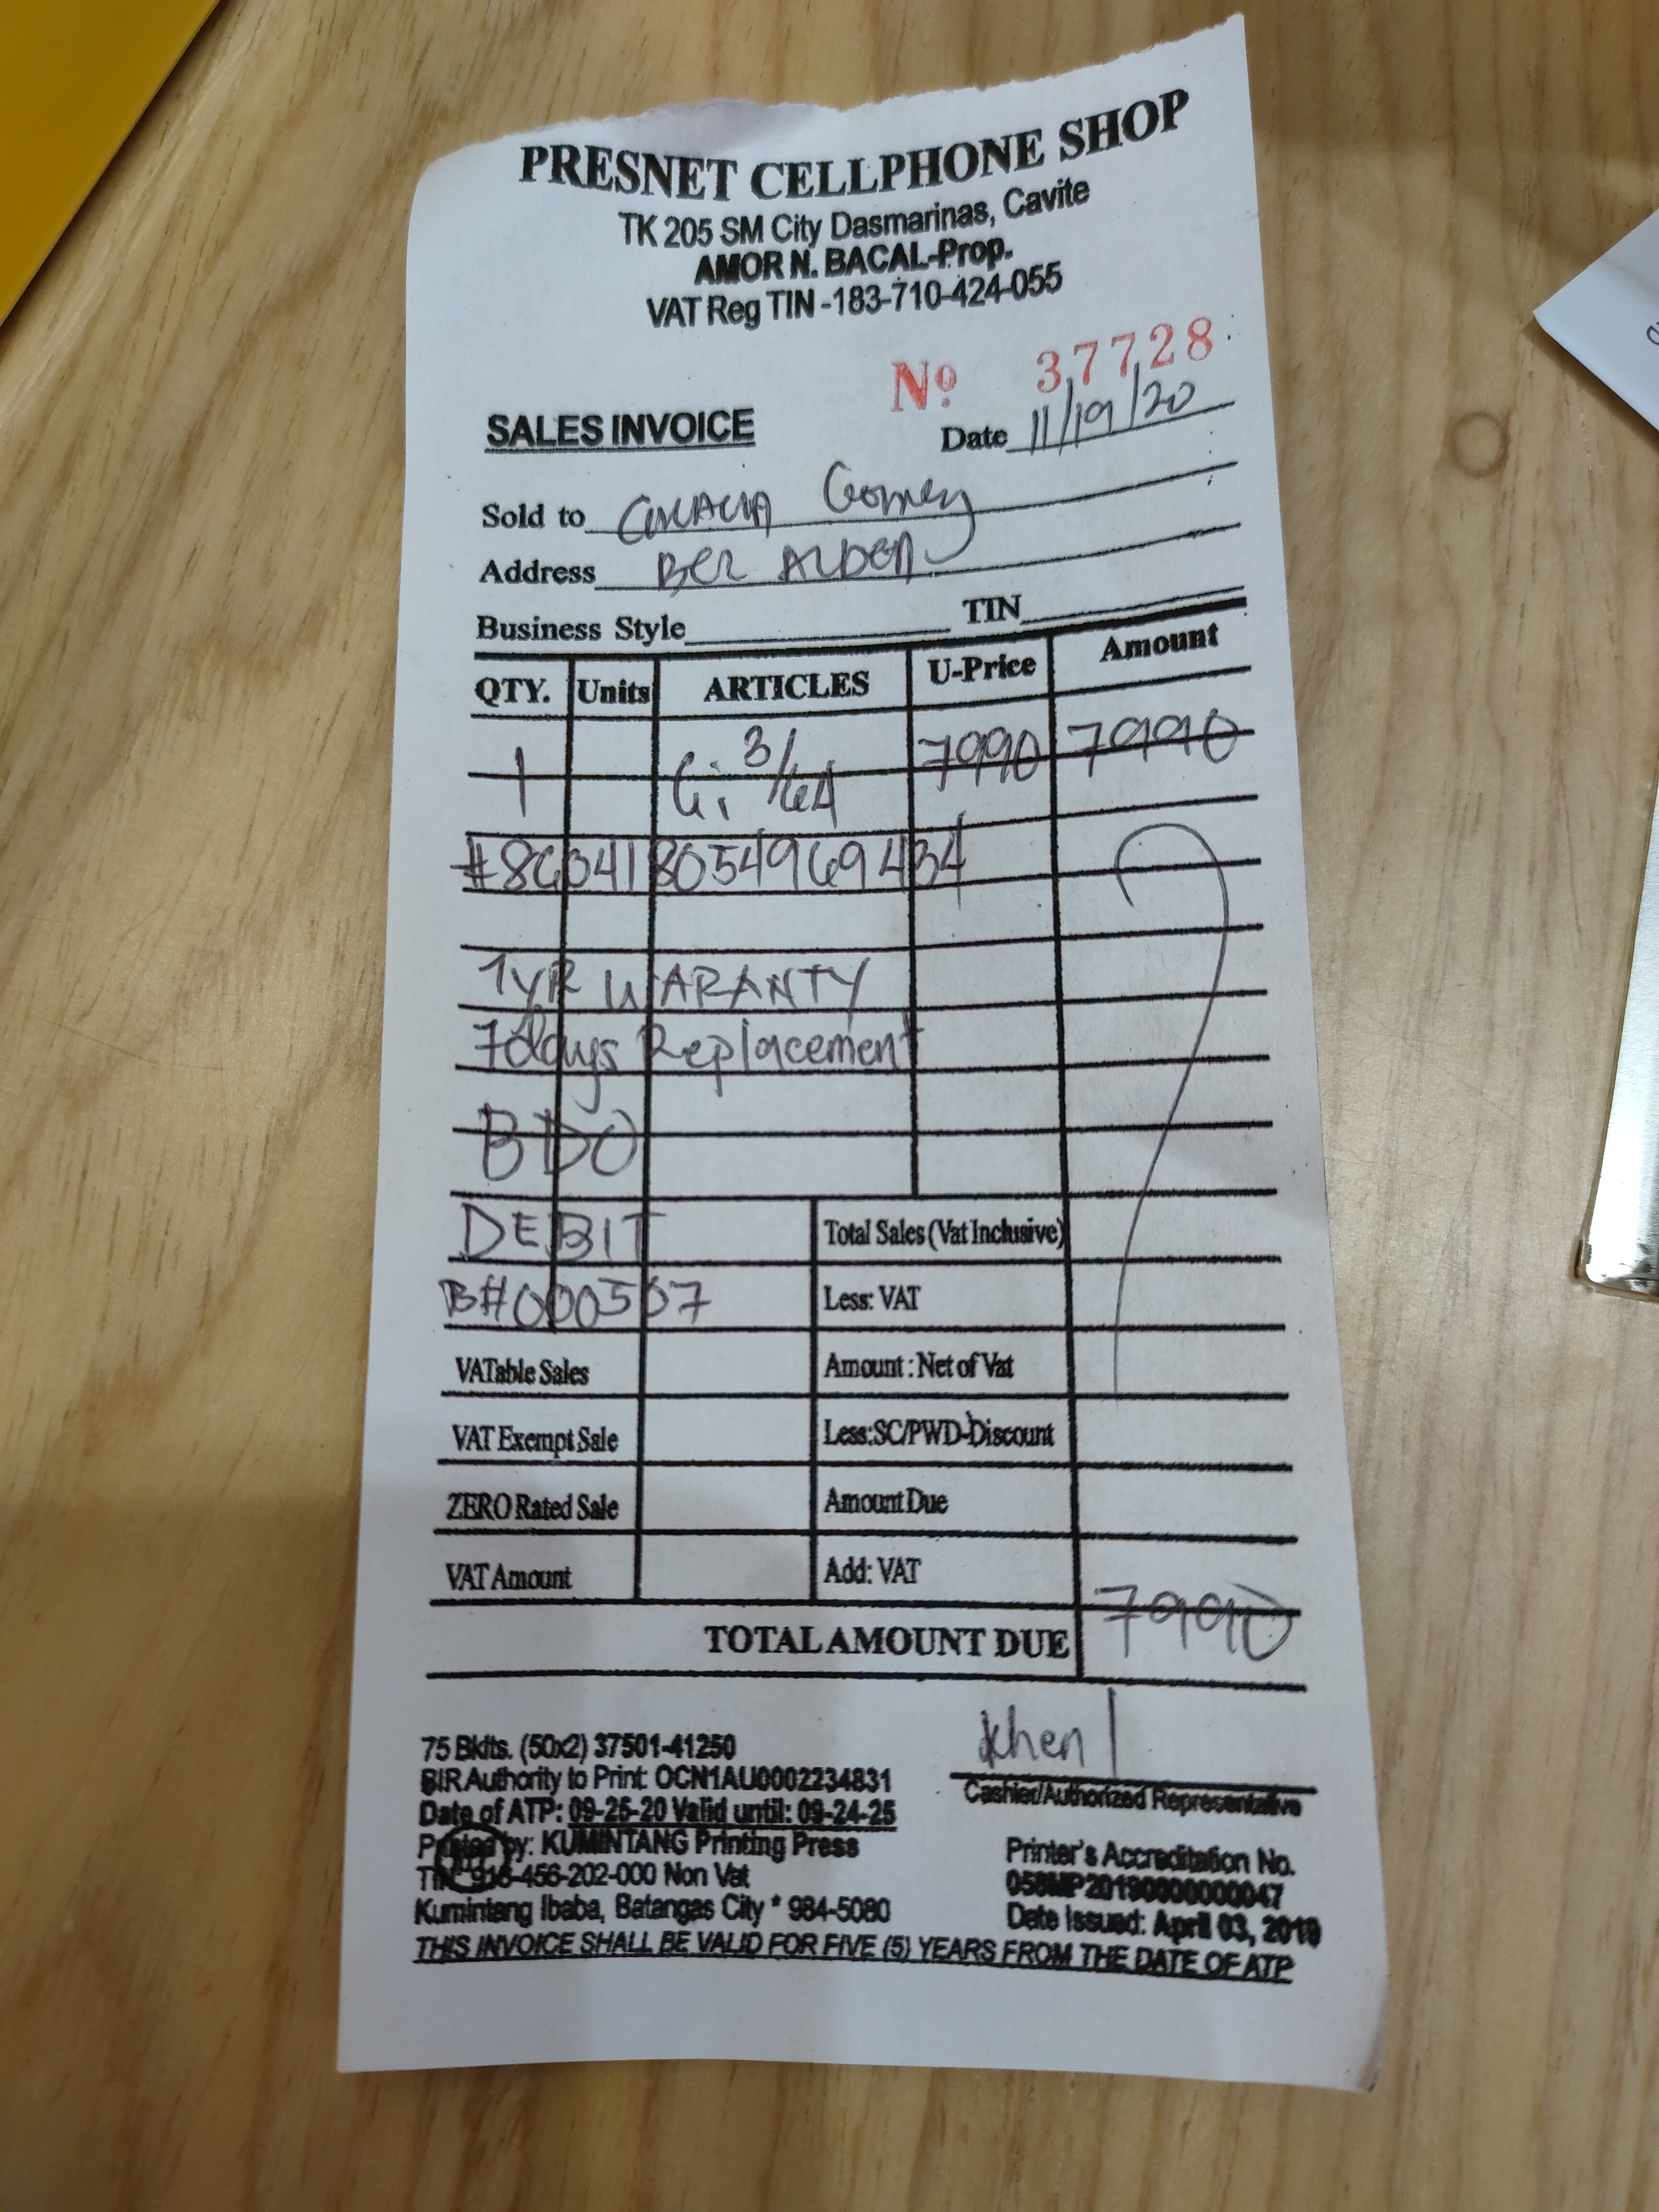 PRESNET CELLPHONE SHOP
TK 205 SM City Dasmarinas, Cavite
AMOR N. BACAL-Prop.
VAT Reg TIN -183-710-424-055
Nº 37728
SALES INVOICE Date 11/19/20
Sold to Gomez
Address
Business Style TIN
QTY. Units ARTICLES U-Price Amount
1 3/64 7990 7990
#860418054969434
1YR WARANTY
7days Replacement
BDO
DEBIT Total Sales (Vat Inclusive)
B#000507 Less: VAT
VATable Sales Amount : Net of Vat
VAT Exempt Sale Less:SC/PWD-Discount
ZERO Rated Sale Amount Due
VAT Amount Add: VAT
TOTAL AMOUNT DUE 7990
khen
Cashier/Authorized Representative
75 Bklts. (50x2) 37501-41250
BIR Authority to Print: OCN1AU0002234831
Date of ATP: 09-25-20 Valid until: 09-24-25
Printed by: KUMINTANG Printing Press
TIN: 916-456-202-000 Non Vat
Kumintang Ibaba, Batangas City * 984-5080
Printer's Accreditation No.
058MP20190000000047
Date Issued: April 03, 2019
THIS INVOICE SHALL BE VALID FOR FIVE (5) YEARS FROM THE DATE OF ATP